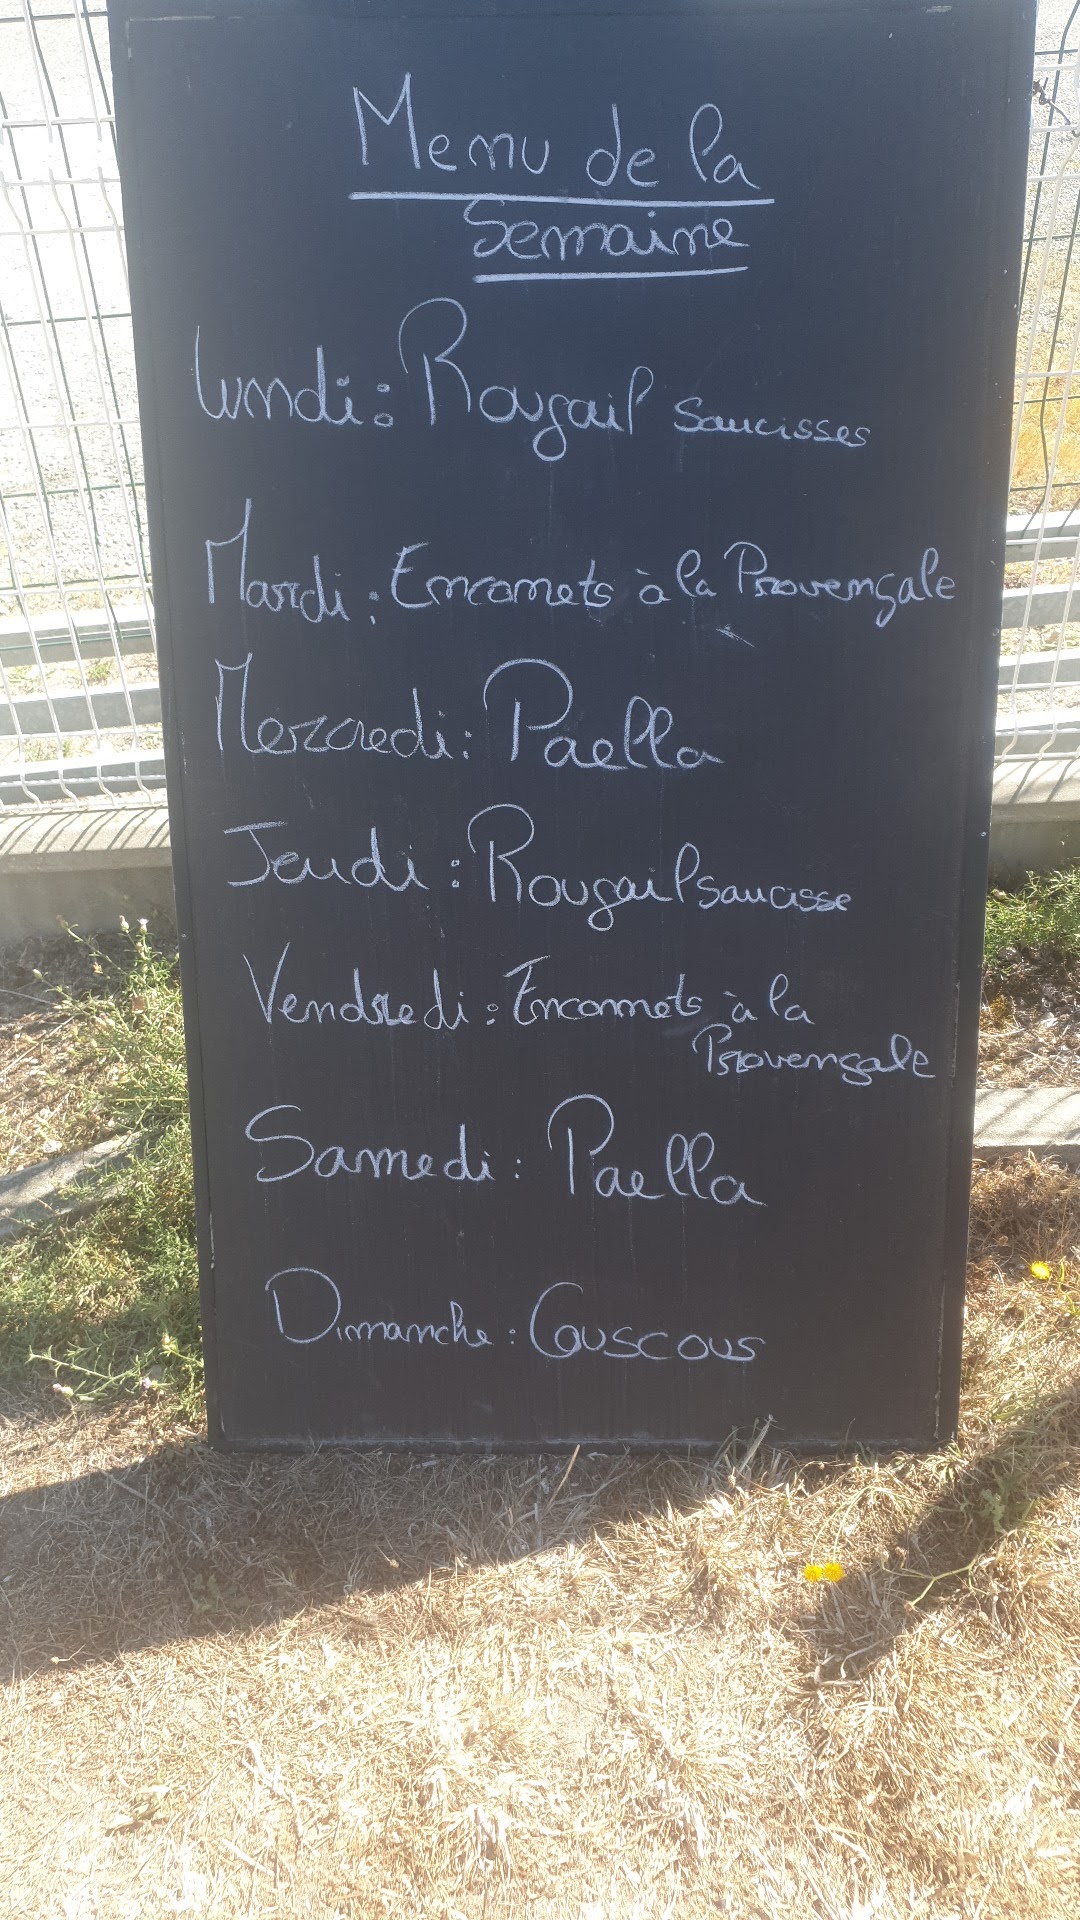 Menu de la
Semaine
Lundi : Rougail saucisses
Mardi : Encornets à la Provençale
Mercredi : Paella
Jeudi : Rougail saucisse
Vendredi : Encornets à la
Provençale
Samedi : Paella
Dimanche : Couscous